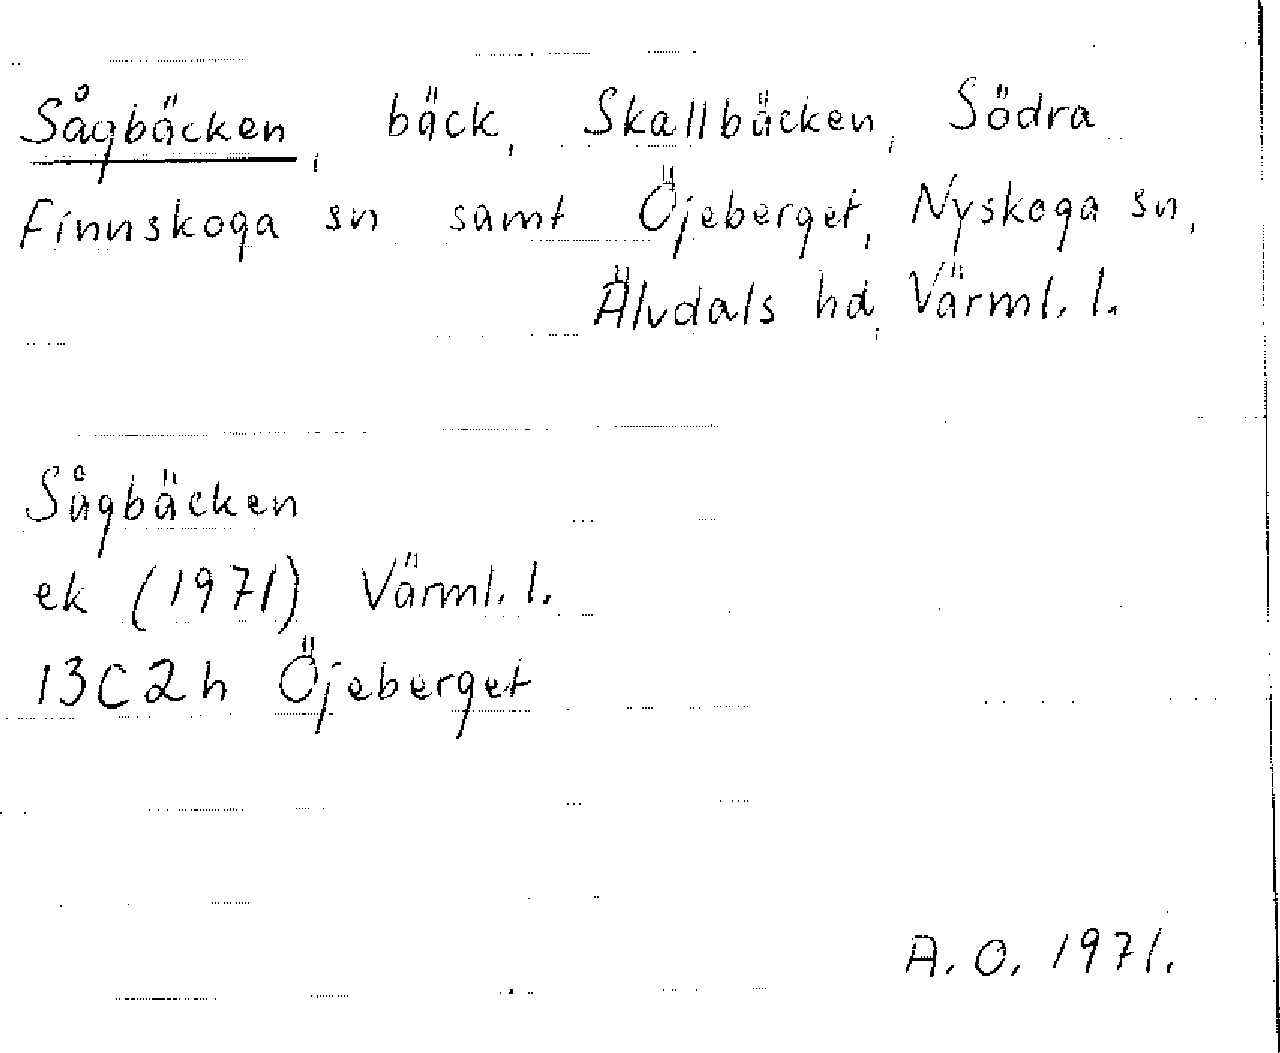 Sågbäcken, bäck, Skallbäcken, Södra
Finnskoga sn samt Öjeberget, Nyskoga sn,
Älvdals hd, Värml. l.
Sågbäcken
ek (1971) Värml. l.
13C2h Öjeberget
A. O. 1971.